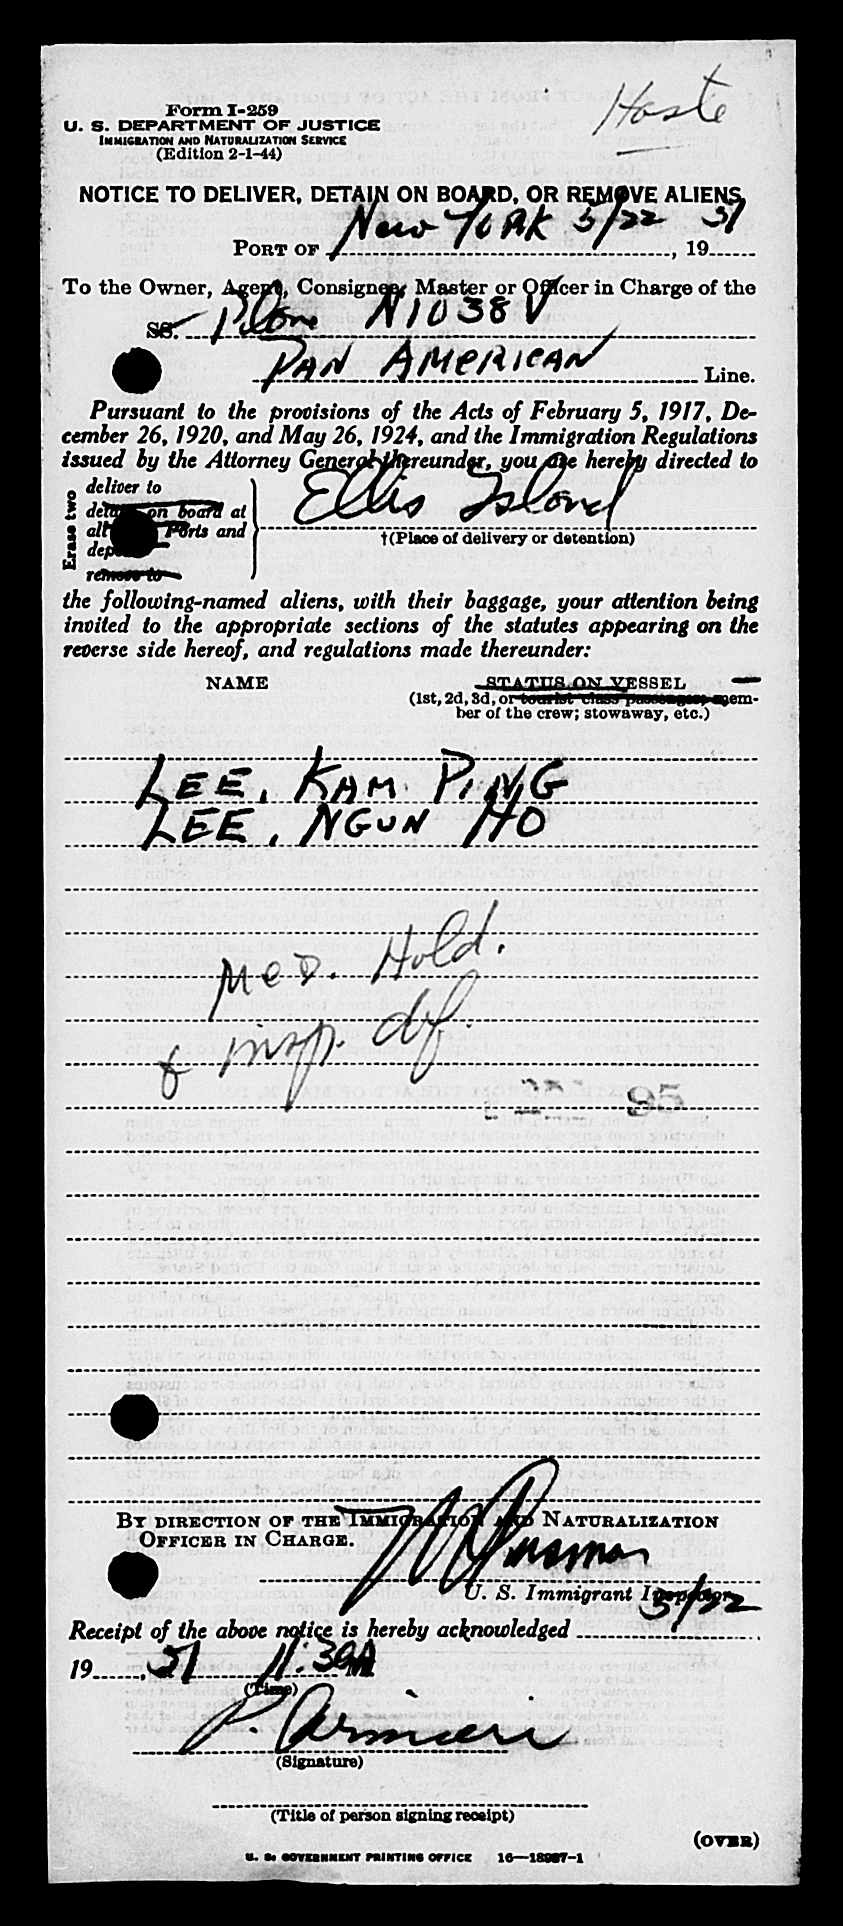 Haste
Form I-259
U. S. DEPARTMENT OF JUSTICE
IMMIGRATION AND NATURALIZATION SERVICE
(Edition 2-1-44)
NOTICE TO DELIVER, DETAIN ON BOARD, OR REMOVE ALIENS
PORT OF New York 5/22, 1951
To the Owner, Agent, Consignee, Master or Officer in Charge of the
SS. Plane N1038V
PAN AMERICAN Line.
Pursuant to the provisions of the Acts of February 5, 1917, De-
cember 26, 1920, and May 26, 1924, and the Immigration Regulations
issued by the Attorney General thereunder, you are hereby directed to
Erase two
deliver to
detain on board at
all Ports and
remove to
Ellis Island
†(Place of delivery or detention)
the following-named aliens, with their baggage, your attention being
invited to the appropriate sections of the statutes appearing on the
reverse side hereof, and regulations made thereunder:
NAME STATUS ON VESSEL
(1st, 2d, 3d, or tourist class passenger; mem-
ber of the crew; stowaway, etc.)
LEE, KAM PING
LEE, NGUN HO
Med. Hold.
& insp. df.
95
BY DIRECTION OF THE IMMIGRATION AND NATURALIZATION
OFFICER IN CHARGE.
U. S. Immigrant Inspector.
Receipt of the above notice is hereby acknowledged 5/22,
19 51 11:30A M
(Time)
P.
(Signature)
(Title of person signing receipt)
(OVER)
U. S. GOVERNMENT PRINTING OFFICE 16—18987-1